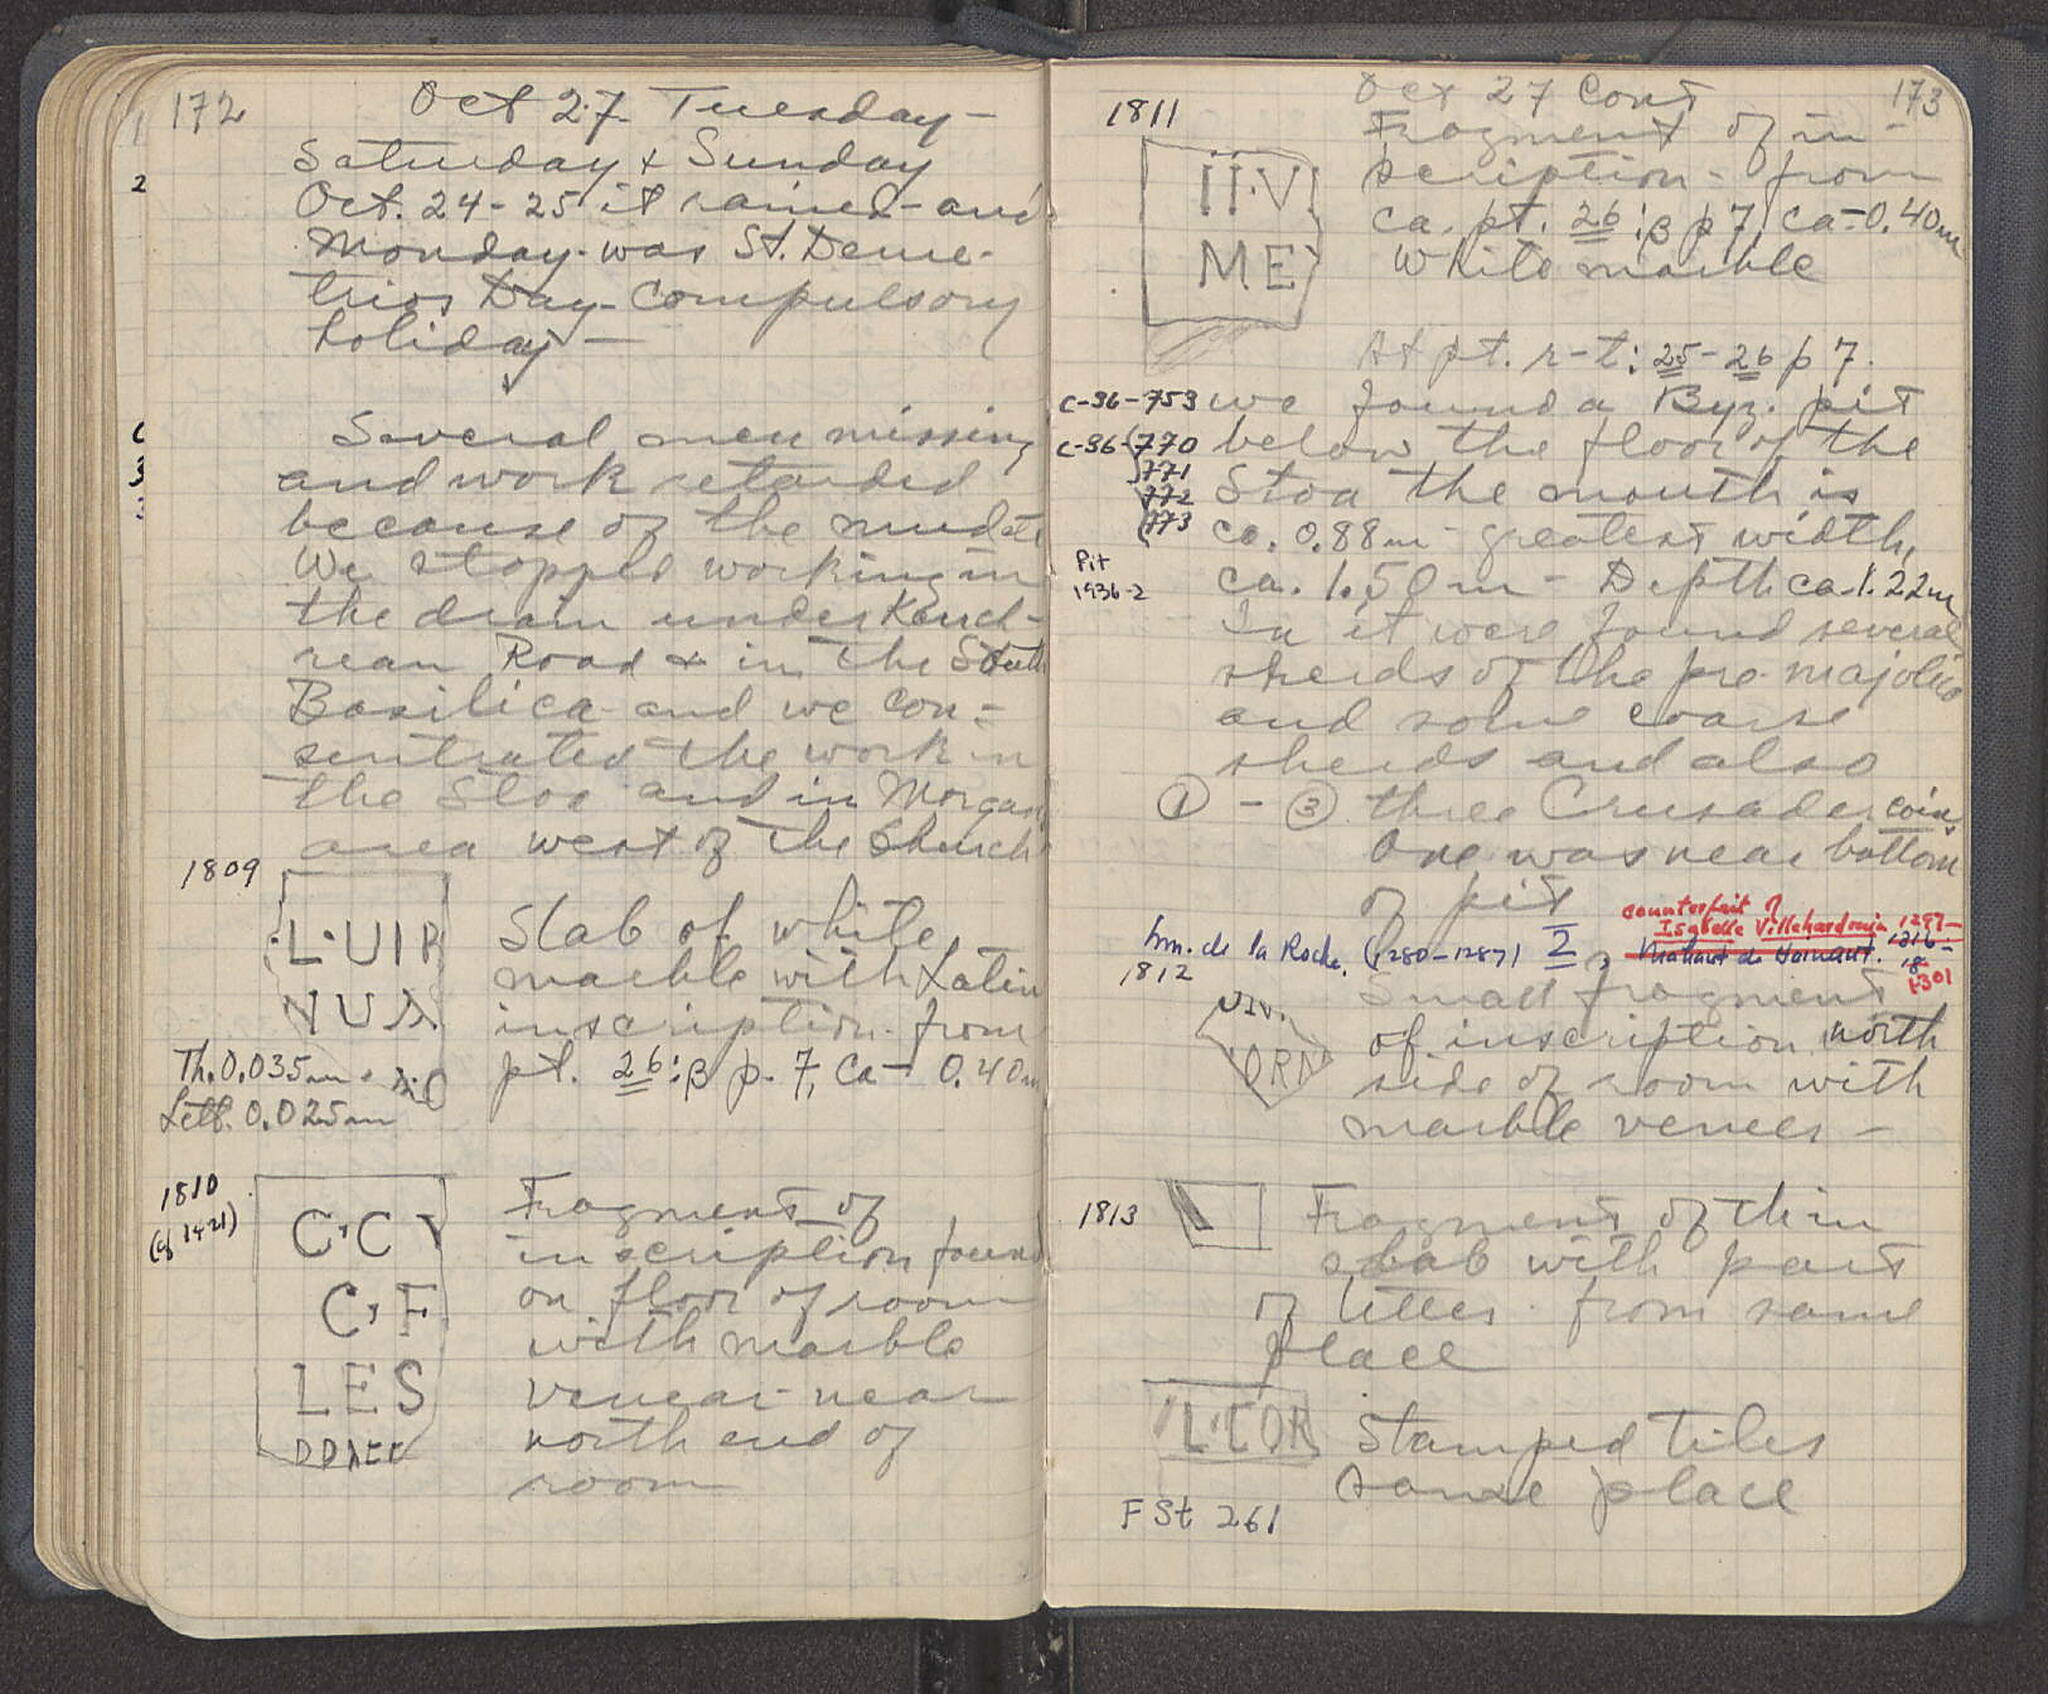 172
Oct 27. Tuesday -
Saturday + Sunday
Oct. 24 - 25 it rained - and
Monday was St. Deme-
trios Day - Compulsory
holiday -
Several men missing
and work retarded
because of the mud
We stopped working in
the drain under Kench-
rean Road & in the South
Basilica and we con-
sentrated the work in
the Stoa and in Morgan
area west of the Church
1809
L·UIR
NUA
Slab of white
marble with Latin
inscription - from
pt. 26:β p. 7, ca - 0.40m
Th. 0.035m.
Lett. 0.025m
1810
(cf 1421)
C·C
C·F
LES
Fragment of
inscription found
on floor of room
with marble
venear - near
north end of
room
Oct 27 Cont
173
1811
II·V
ME
Fragment of in-
scription - from
ca. pt. 26:β p 7, ca - 0.40m
White marble
At pt. r-t: 25-26 p 7.
C-36-753 we found a Byz. pit
C-36-770 below the floor of the
771
772 Stoa the mouth is
773 ca. 0.88m - greatest width,
Pit
1936-2
ca. 1.50m - Depth ca. 1.22m
In it were found several
sherds of the pre-majolica
and some coarse
sherds and also
① - ③ three Crusader coins
One was near bottom
of pit
counterfeit of
Isabelle Villehardouin 1297-
1301
Mahaut de Hainaut. 1316-
18
hm. de la Roche. (1280-1287) 2,
1812
ORN
Small fragment
of inscription north
side of room with
marble veneer -
1813
Fragment of thin
slab with part
of letter from same
place
L·COR
Stamped tiles
same place
FSt 261